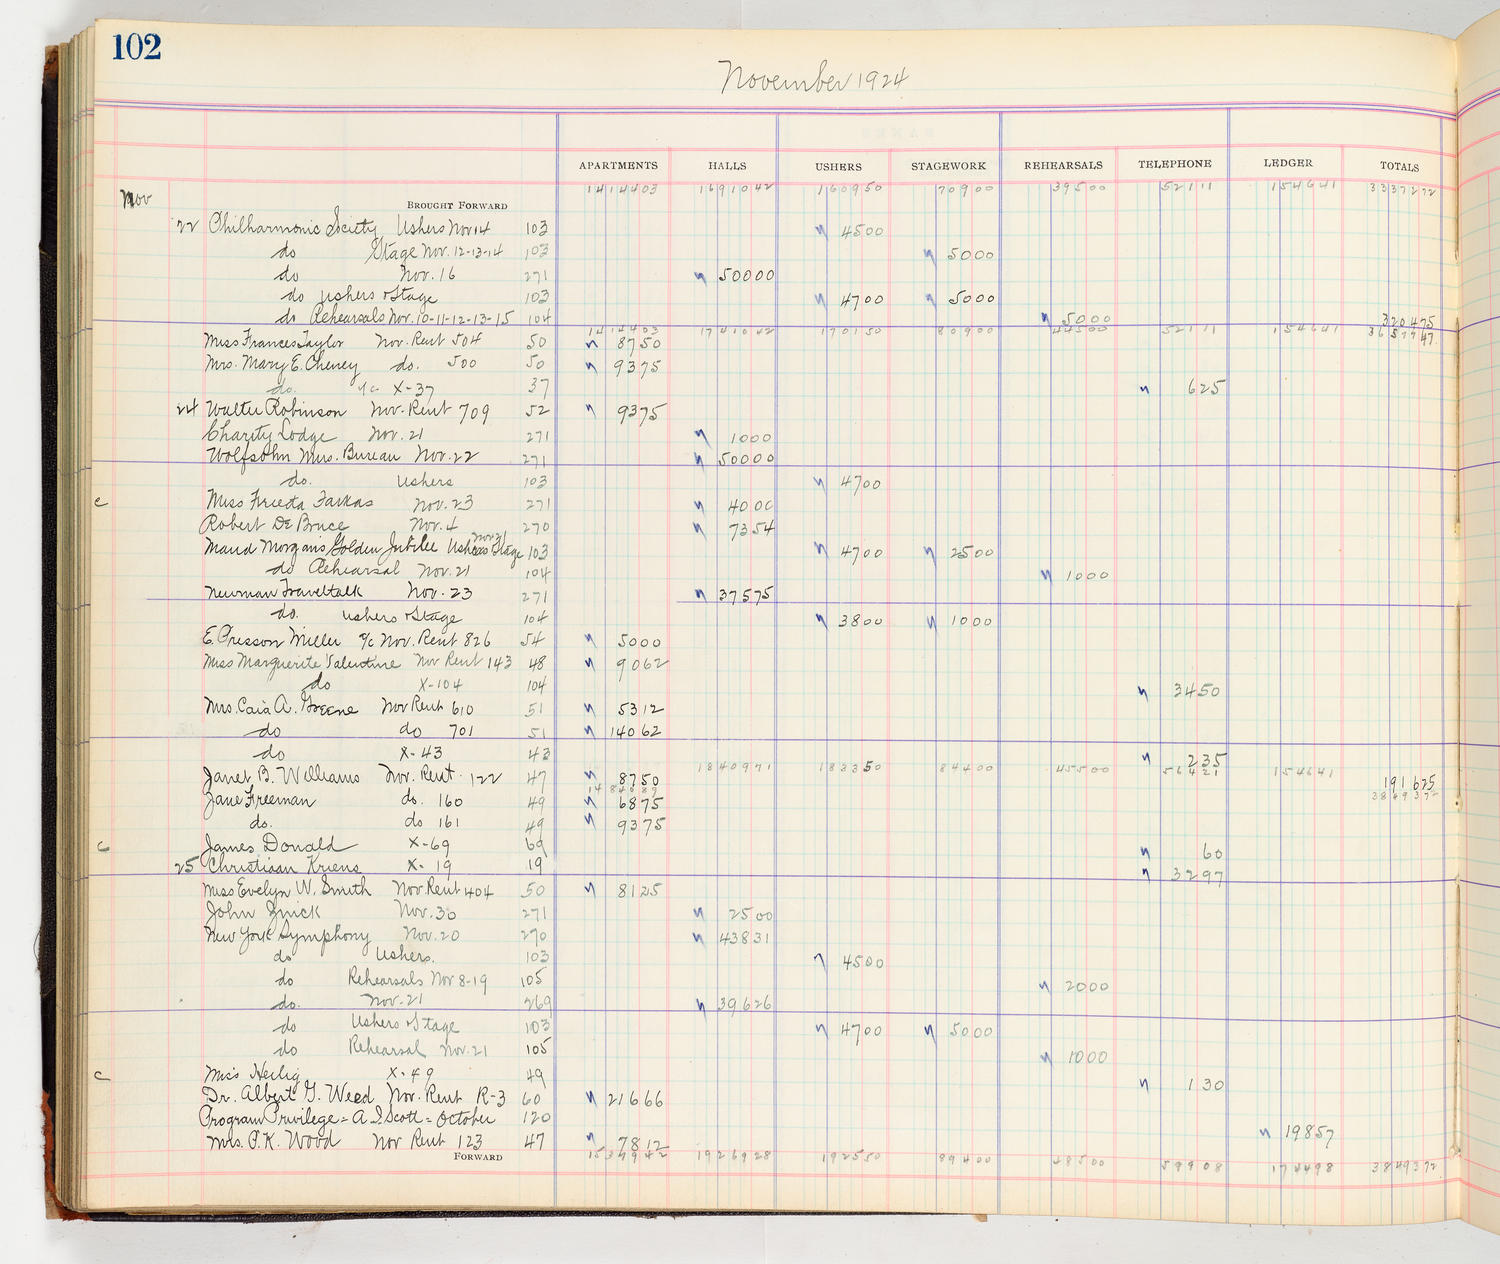 102
November 1924
APARTMENTS HALLS USHERS STAGEWORK REHEARSALS TELEPHONE LEDGER TOTALS
Nov BROUGHT FORWARD 1414403 1691042 160950 70900 39500 52111 154641 3337272
22 Philharmonic Society Ushers Nov 14 103 4500
do Stage Nov. 12-13-14 103 5000
do Nov. 16 271 50000
do Ushers & Stage 103 4700 5000
do Rehearsals Nov. 10-11-12-13-15 104 5000 320475
1414403 1741042 170150 80900 44500 52111 154641 3657747
Miss Frances Taylor Nov. Rent 504 50 8750
Mrs. Mary E. Cheney do. 500 50 9375
do. a/c X-37 37 625
24 Walter Robinson Nov. Rent 709 52 9375
Charity Lodge Nov. 21 271 1000
Wolfsohn Mus. Bureau Nov. 22 271 50000
do. Ushers 103 4700
c Miss Frieda Farkas Nov. 23 271 4000
Robert De Bruce Nov. 4 270 7354
Maud Morgan's Golden Jubilee Ushers Stage Nov 21 103 4700 2500
do Rehearsal Nov. 21 104 1000
Newman Traveltalk Nov. 23 271 37575
do. Ushers & Stage 104 3800 1000
E. Presson Miller a/c Nov. Rent 826 54 5000
Miss Marguerite Valentine Nov Rent 143 48 9062
do X-104 104 3450
Mrs. Caia A. Greene Nov Rent 610 51 5312
do do 701 51 14062
do X-43 43 235
1840971 183350 84400 45500 56421 154641
Janet B. Williams Nov. Rent. 122 47 8750 191625
1484089 3849372
Jane Freeman do. 160 49 6875
do. do 161 49 9375
c James Donald X-69 69 60
25 Christiaan Kriens X-19 19 3297
Miss Evelyn W. Smith Nov Rent 404 50 8125
John Nov. 30 271 2500
New York Symphony Nov. 20 270 43831
do Ushers. 103 4500
do Rehearsals Nov 8-19 105 2000
do. Nov. 21 269 39626
do Ushers & Stage 103 4700 5000
do Rehearsal Nov. 21 105 1000
c Miss Heilig X-49 49 130
Dr. Albert G. Weed Nov. Rent R-3 60 21666
Program Privilege = A. I. Scott = October 120 19857
Mrs. P. K. Wood Nov Rent 123 47 7812
FORWARD 1926928 192550 89400 48500 59908 174498 3849372